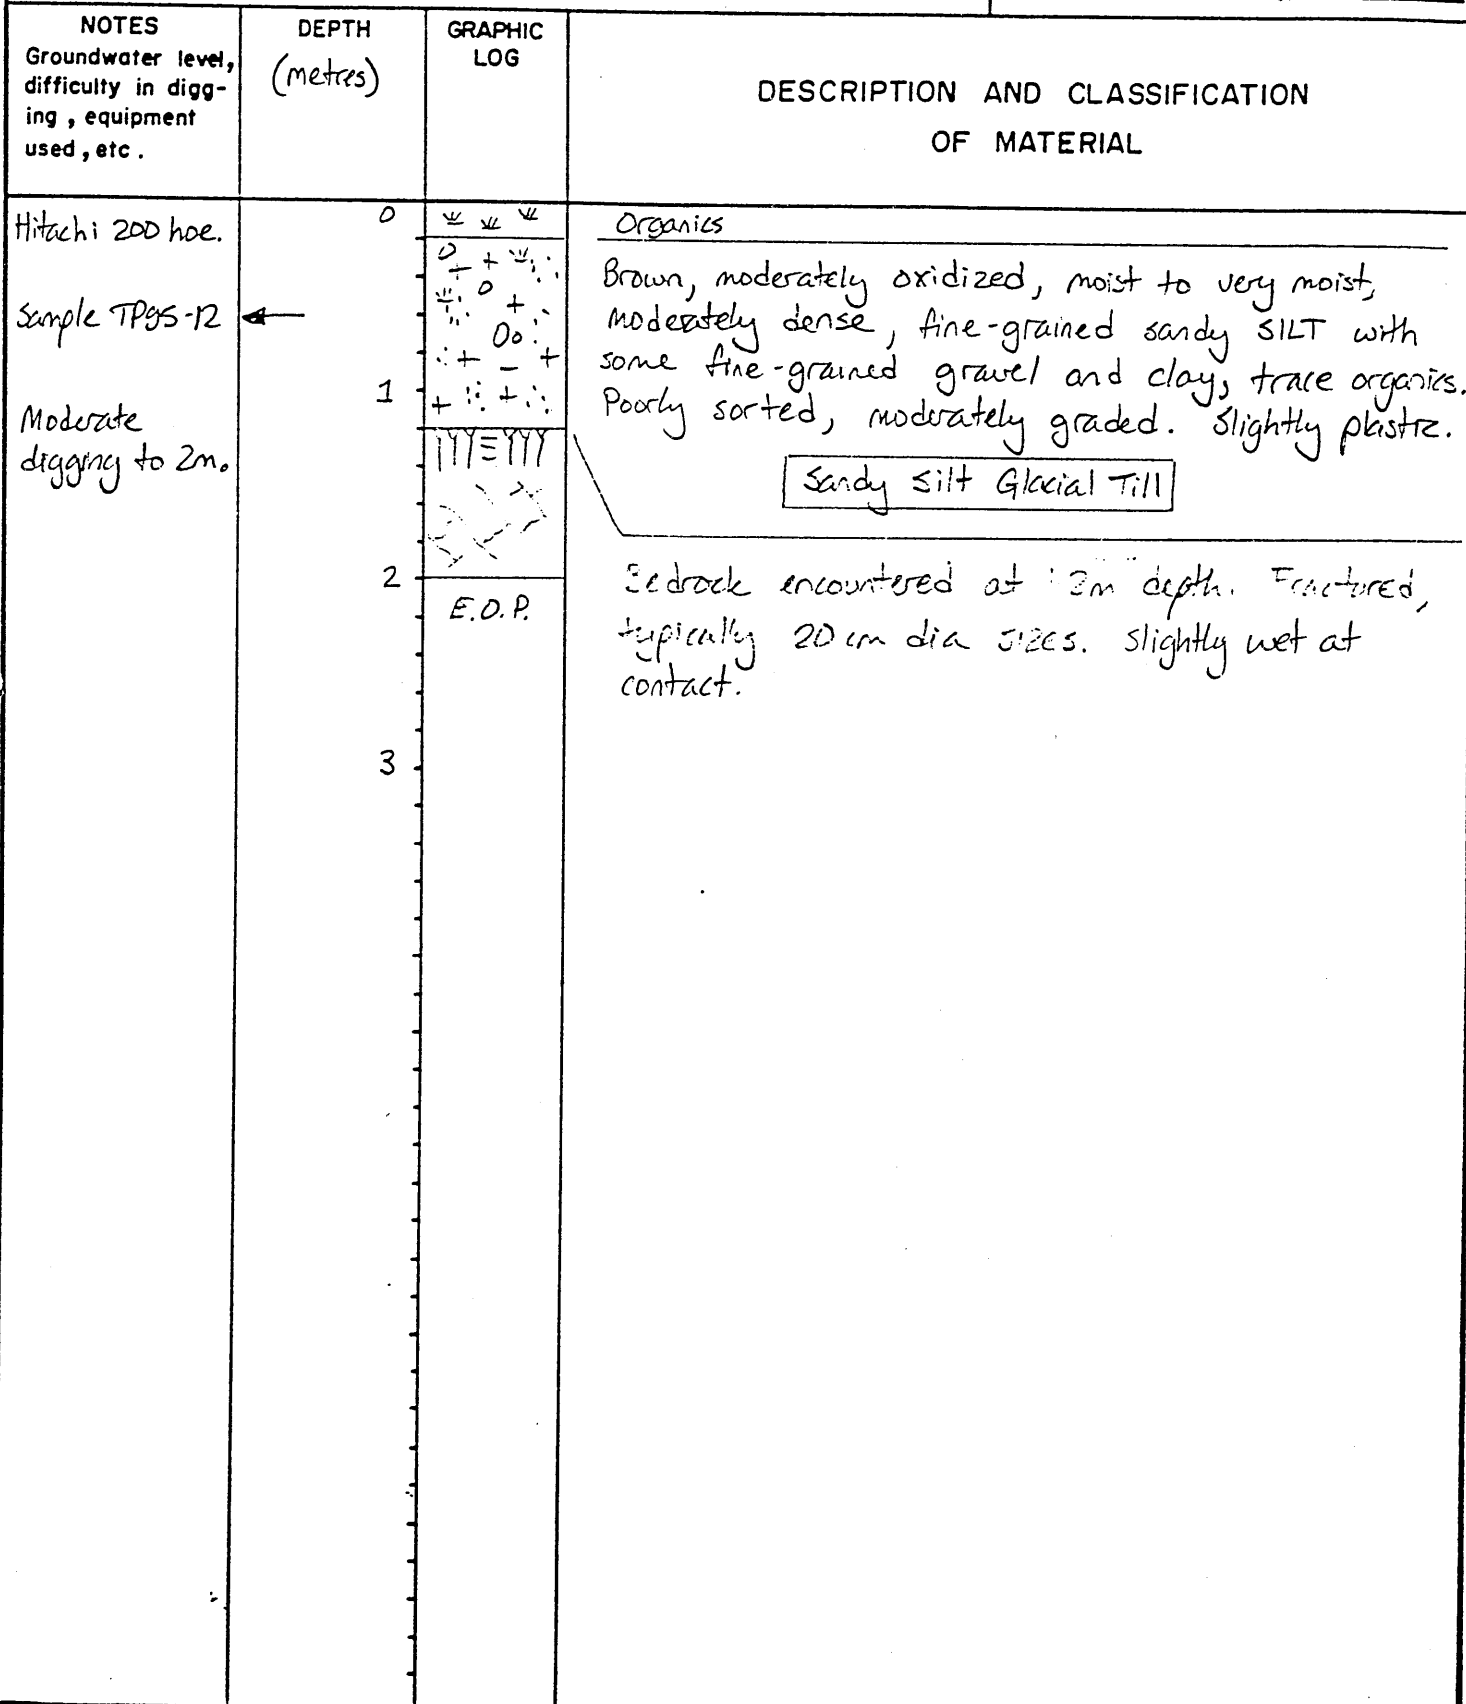 NOTES
Groundwater level,
difficulty in digg-
ing , equipment
used , etc .
DEPTH
(metres)
GRAPHIC
LOG
DESCRIPTION AND CLASSIFICATION
OF MATERIAL
Hitachi 200 hoe.
Sample TP95-12
Moderate
digging to 2m.
0
1
2
3
E.O.P.
Organics
Brown, moderately oxidized, moist to very moist,
moderately dense, fine-grained sandy SILT with
some fine-grained gravel and clay, trace organics.
Poorly sorted, moderately graded. Slightly plastic.
Sandy Silt Glacial Till
Bedrock encountered at depth. Fractured,
typically 20 cm dia sizes. Slightly wet at
contact.